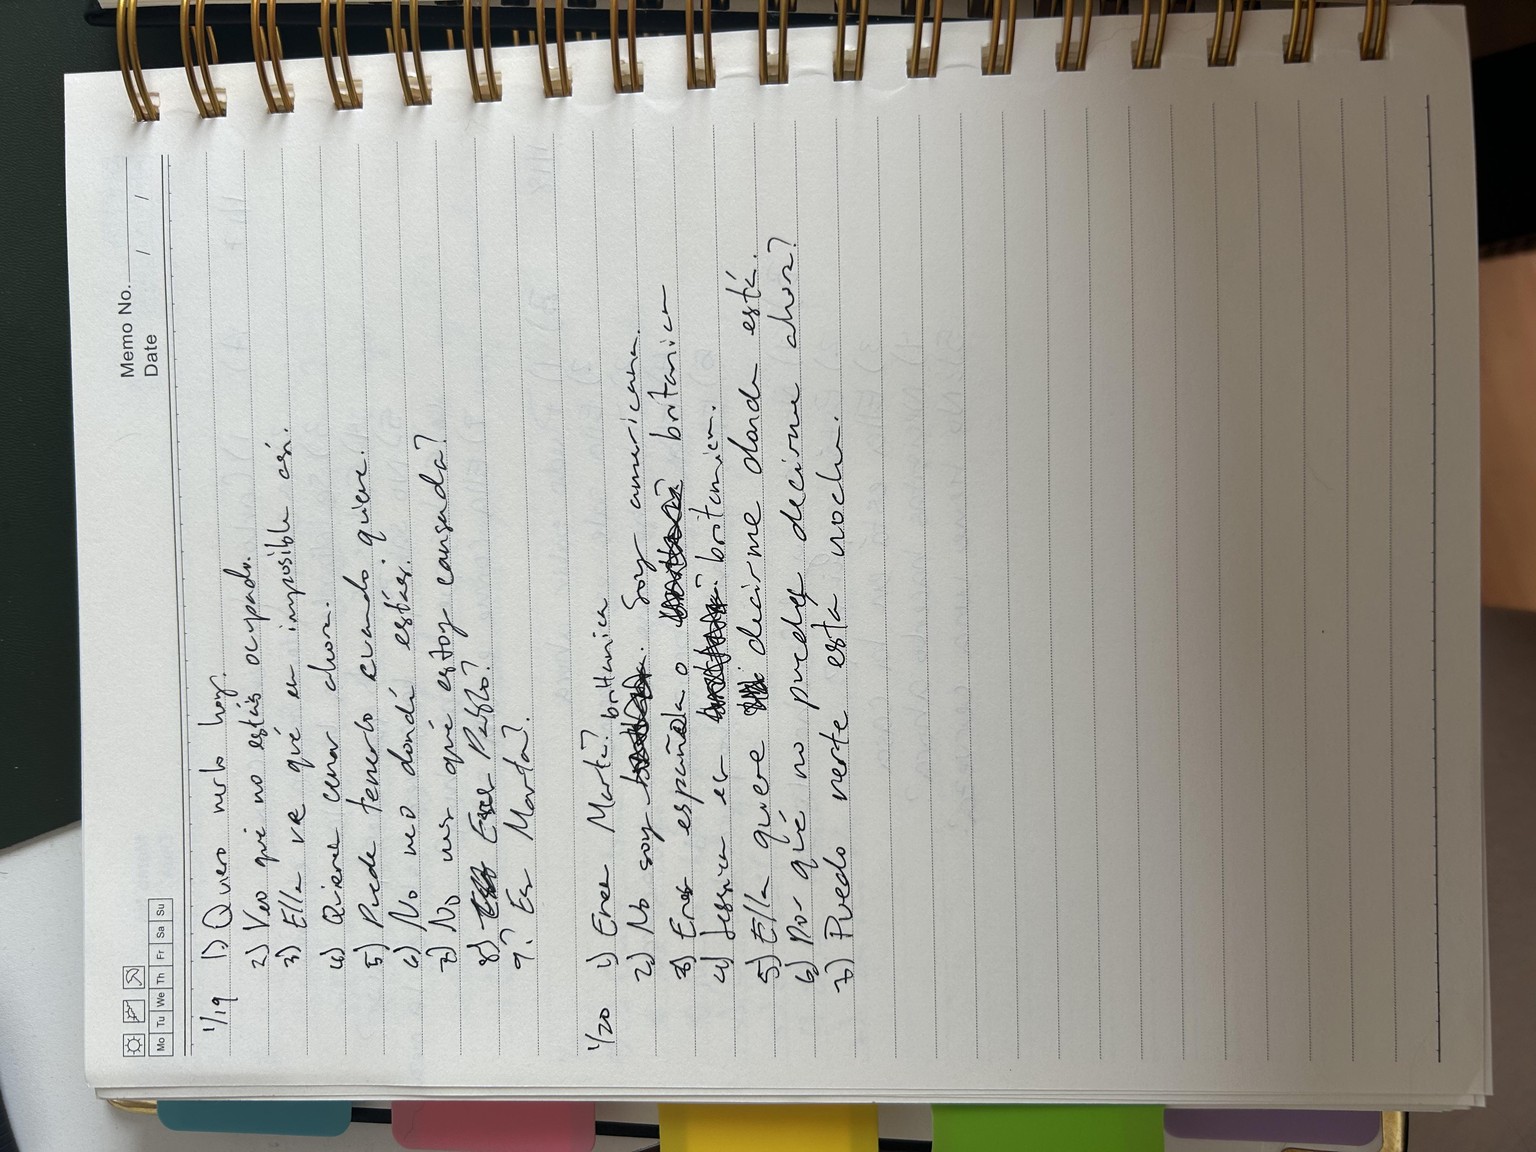 Memo No.
Date / /
Mo Tu We Th Fr Sa Su
1/19 1) Quiero verlo hoy.
2) Veo qué no estás ocupado.
3) Ella ve qué es imposible así.
4) Quiere cenar ahora.
5) Puede tenerlo cuando quiere.
6) No veo dondé estás.
7) No ves qué estoy cansada?
8) Eres Pablo?
9) Es Marta?
1/20 1) Eres Marta?
2) No soy brittanica. Soy americana.
3) Eres española o britanica
4) Jessica es britanica.
5) Ella quere decirme donde está.
6) Por qué no puedes decirme ahora?
7) Puedo verte está noche.